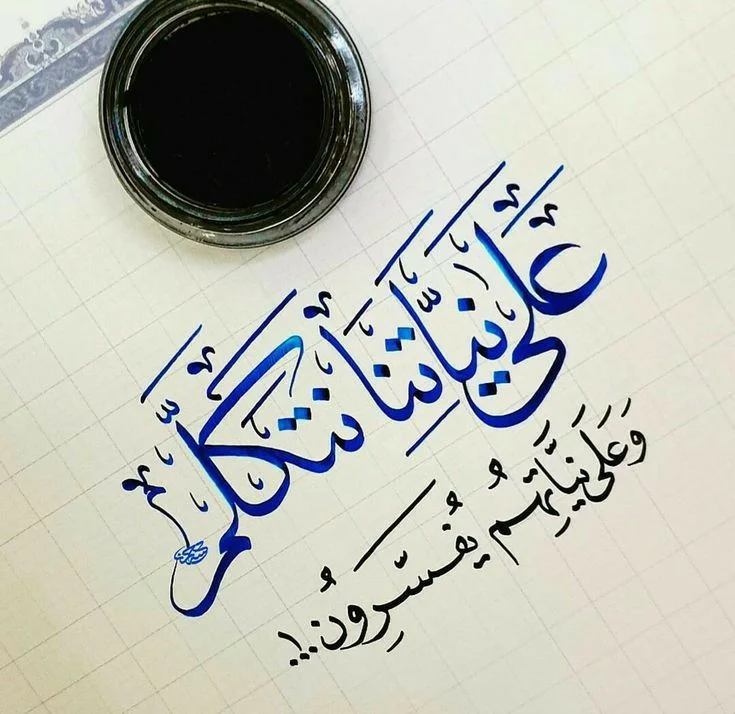 عَلَى نِيَّاتِنَا نَتَكَلَّمُ
وَعَلَى نِيَّاتِهِمُ يُفَسِّرُونَ..!